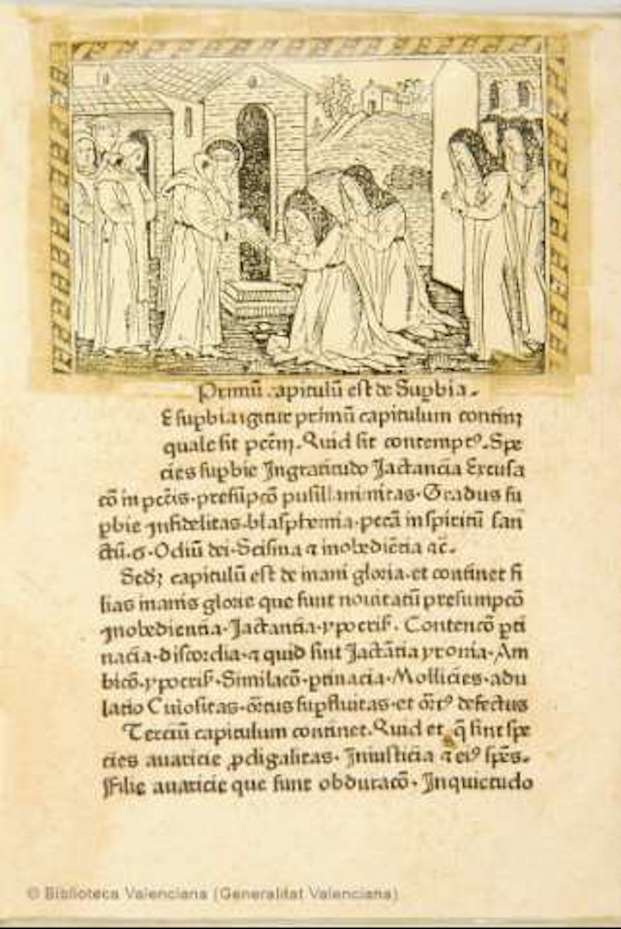 Primũ capitulũ est de Supbia.
E supbia igitur primũ capitulum continꝫ
quale sit pctm̃. Quid sit contempt⁹. Spe
cies supbie Ingratitudo Jactancia Excusa
cõ in pctis. presũpcõ pusillanimitas. Gradus su
pbie infidelitas. blasphemia. peccã in spiritũ san
ctũ. s. Odiũ dei. Scisma ⁊ inobediẽtia ⁊c̃.
Secdꝫ capitulũ est de inani gloria. et continet fi
lias inanis glorie que sunt nouitatũ presumpcõ
Inobedientia. Jactantia. ypocris̃. Contencõ pti
nacia. discordia. ⁊ quid sint Jactãtia yronia. Am
bicõ. ypocris̃. Similacõ. ptinacia. Mollicies. adu
latio Curiositas. õtus supfluitas. et õt⁹ defectus
Terciũ capitulum continet. Quid et q̃ sint spe
cies auaricie ꝓdigalitas. Iniusticia ⁊ ei⁹ spẽs.
Filie auaricie que sunt obduracõ. Inquietudo
© Biblioteca Valenciana (Generalitat Valenciana)